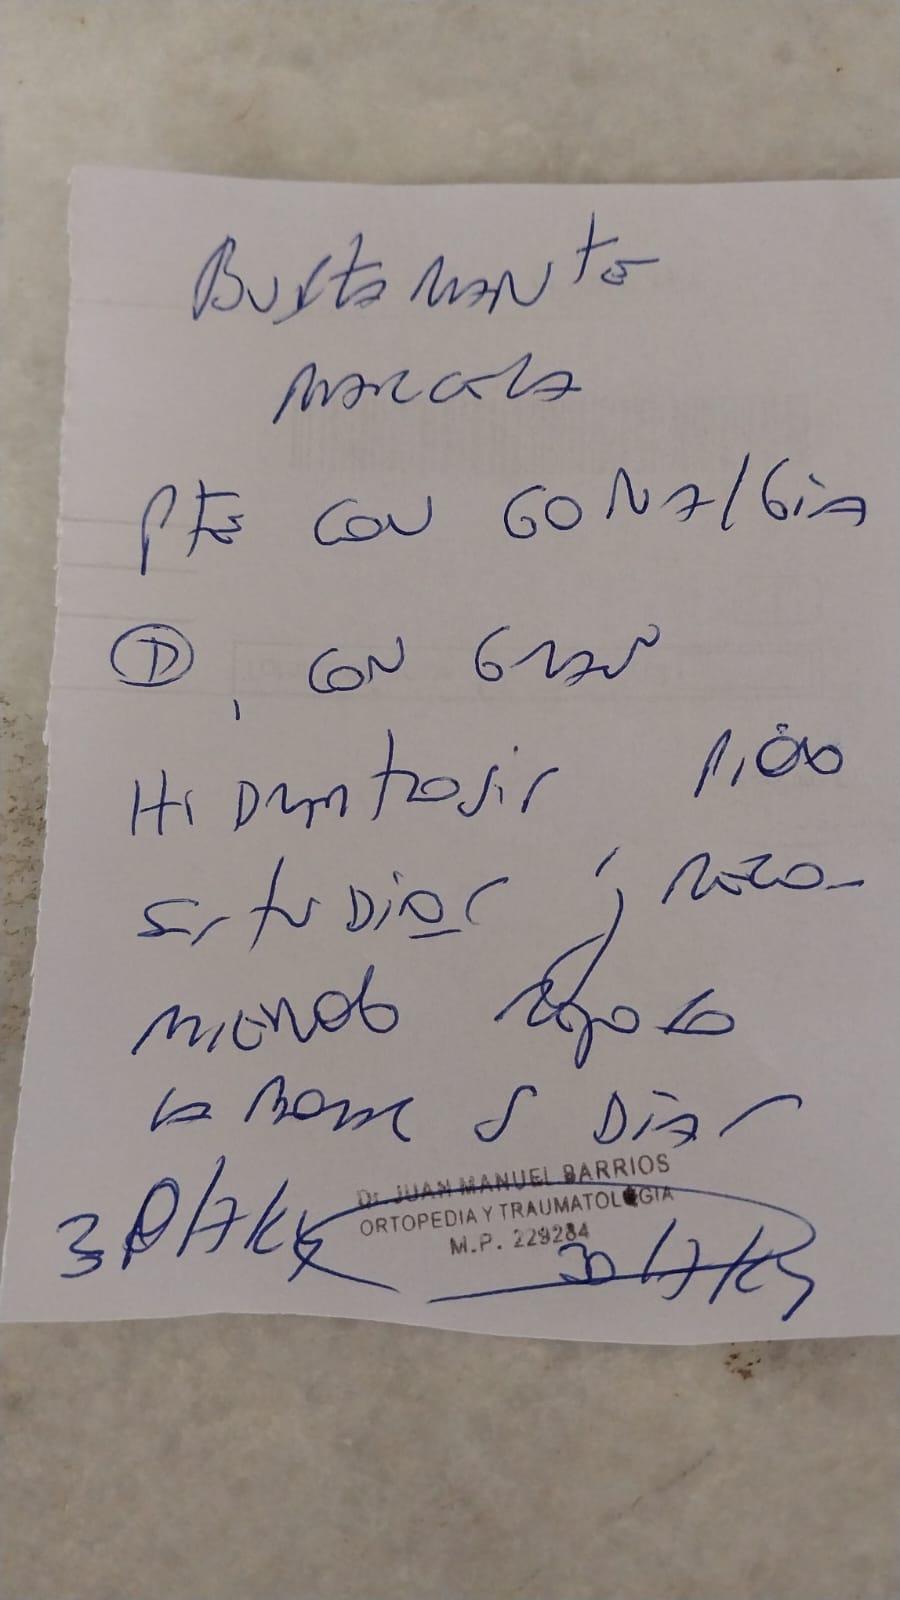 Bustamante
Marcela
Pte con gonalgia
Ⓓ, con gran
Hidrartrosis pido
Estudios y reco-
miendo reposo
laboral 5 dias
Dr. JUAN MANUEL BARRIOS
ORTOPEDIA Y TRAUMATOLOGIA
M.P. 229284